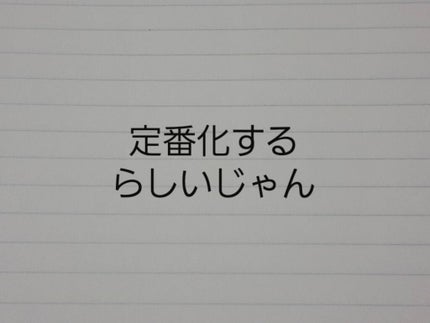 定番化する
らしいじゃん